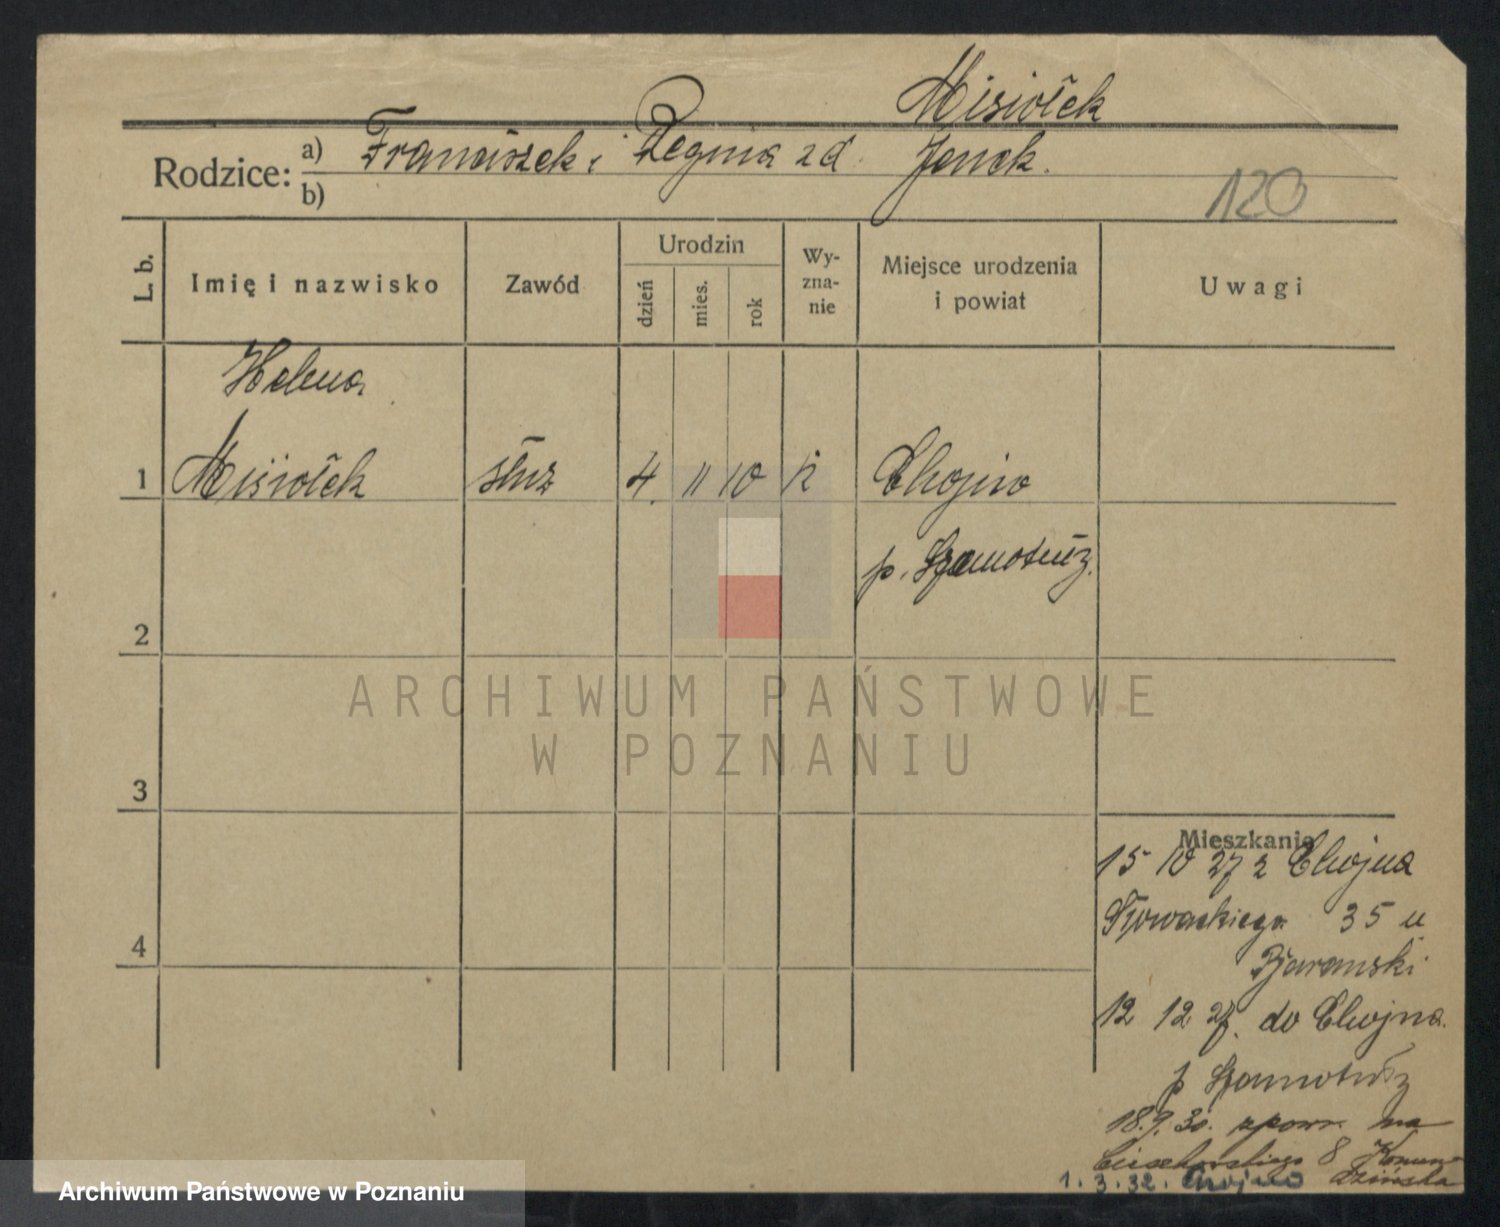 Misiołek
Rodzice: a) Franciszek i Regina zd. Janek.
b)
120
L. b.
Imię i nazwisko
Zawód
Urodzin
dzień
mies.
rok
Wy-
zna-
nie
Miejsce urodzenia
i powiat
Uwagi
Helena
1 Misiołek służ 4. 11 10 k Chojno
p. Szamotuły.
2
ARCHIWUM PAŃSTWOWE
W POZNANIU
3
Mieszkania
15 10 27 z Chojna
Słowackiego 35 u
4
12 12 27. do Chojna.
p Szamotuły
18.9.30. na
8
1.3.32. Chojno
Archiwum Państwowe w Poznaniu